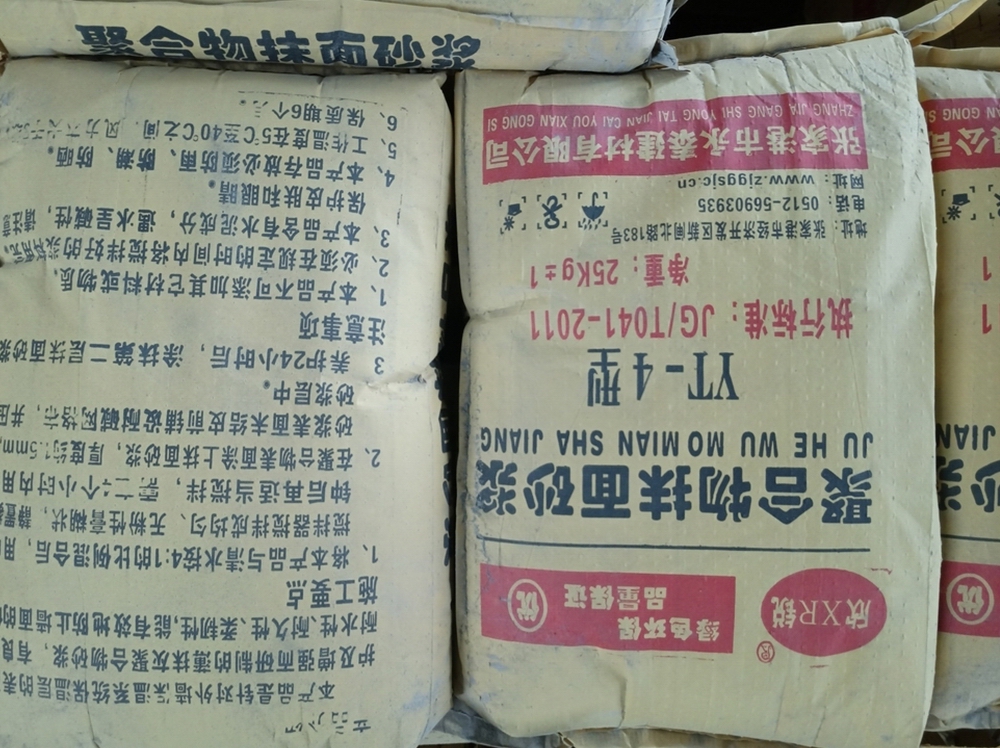 聚合物抹面砂浆
欣XR锐
®
绿色环保
品量保证
优
聚合物抹面砂浆
JU HE WU MO MIAN SHA JIANG
YT-4型
执行标准：JG/T041-2011
净重：25Kg±1
地址：张家港市经济开发区新闸北路183号
电话：0512-56903935
网址：www.zjggsjc.cn
张家港市永泰建材有限公司
ZHANG JIA GANG SHI YONG TAI JIAN CAI YOU XIAN GONG SI
本产品是针对外墙保温系统保温层的表
护及增强而研制的薄抹灰聚合物砂浆，有良
耐水性、耐久性、柔韧性，能有效地防止墙面的
施工要点
1、将本产品与清水按4:1的比例混合后，用
搅拌器搅拌成均匀、无粉性膏糊状，静置
钟后再适当搅拌，需二个小时内用
2、在聚合物表面涂上抹面砂浆，厚度约1.5mm,
砂浆表面未结皮前铺设耐碱网格布，并压
砂浆层中。
3 养护24小时后，涂抹第二层抹面砂浆
注意事项
1、本产品不可添加其它材料或物质。
2、必须在规定的时间内将搅拌好的浆料用完。
3、本产品含有水泥成分，遇水呈碱性，请注意
保护皮肤和眼睛。
4、本产品存放必须防雨、防潮、防晒。
5、工作温度在5℃至40℃之间，风力不大于5
6、保质期6个月
优
砂浆
JIANG
1
1
限公司
N GONG SI